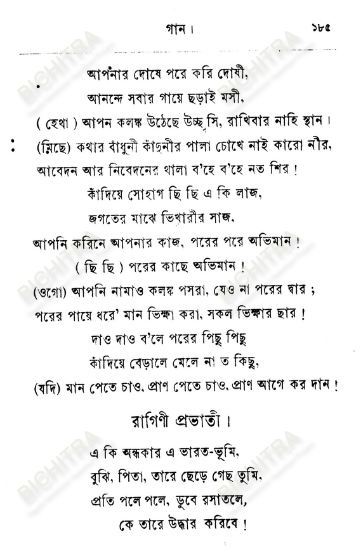 গান।
১৮৫
আপনার দোষে পরে করি দোষী,
আনন্দে সবার গায়ে ছড়াই মসী,
( হেথা ) আপন কলঙ্ক উঠেছে উচ্ছ্বসি, রাখিবার নাহি স্থান।
(মিছে) কথার বাঁধুনী কাঁদুনীর পালা চোখে নাই কারো নীর,
আবেদন আর নিবেদনের থালা ব'হে ব'হে নত শির!
কাঁদিয়ে সোহাগ ছি ছি এ কি লাজ,
জগতের মাঝে ভিখারীর সাজ,
আপনি করিনে আপনার কাজ, পরের পরে অভিমান!
( ছি ছি ) পরের কাছে অভিমান!
(ওগো) আপনি নামাও কলঙ্ক পসরা, যেও না পরের দ্বার;
পরের পায়ে ধরে' মান ভিক্ষা করা, সকল ভিক্ষার ছার!
দাও দাও ব'লে পরের পিছু পিছু
কাঁদিয়ে বেড়ালে মেলে না ত কিছু,
(যদি) মান পেতে চাও, প্রাণ পেতে চাও, প্রাণ আগে কর দান!
রাগিণী প্রভাতী।
এ কি অন্ধকার এ ভারত-ভূমি,
বুঝি, পিতা, তারে ছেড়ে গেছ তুমি,
প্রতি পলে পলে, ডুবে রসাতলে,
কে তারে উদ্ধার করিবে!
BICHITRA
BICHITRA
BICHITRA
BICHITRA
BICHITRA
BICHITRA